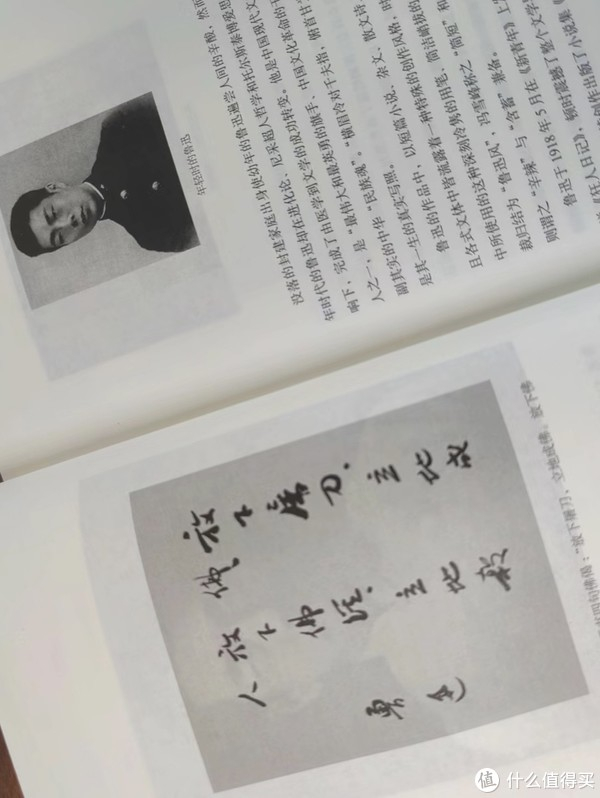 年轻时的鲁迅
没落的封建家庭出身使幼年的鲁迅遍尝人间的辛酸，然而
年时代的鲁迅却在进化论、尼采超人哲学和托尔斯泰博爱思想
响下，完成了由医学到文学的成功转变。他是中国现代文
人之一，是“最伟大和最英勇的旗手，中国文化革命的主
副其实的中华“民族魂”。“横眉冷对千夫指，俯首甘
是其一生的真实写照。
鲁迅的作品中，以短篇小说、杂文、散文诗
且各式文体中皆流露着一种特殊的创作风格，
中所使用的这种深刻冷隽的用笔，简洁峭拔的
裁归结为“鲁迅风”，冯雪峰称之“简短”和
则谓之“辛辣”与“含蓄”兼备。
鲁迅于1918年5月在《新青年》上
《狂人日记》，顿时震撼了整个文学
创作出版了小说集《
放下屠刀.立地成
佛
放下佛经.立地杀
人
鲁迅
的佛偈：“放下屠刀，立地成佛，放下佛
值 什么值得买